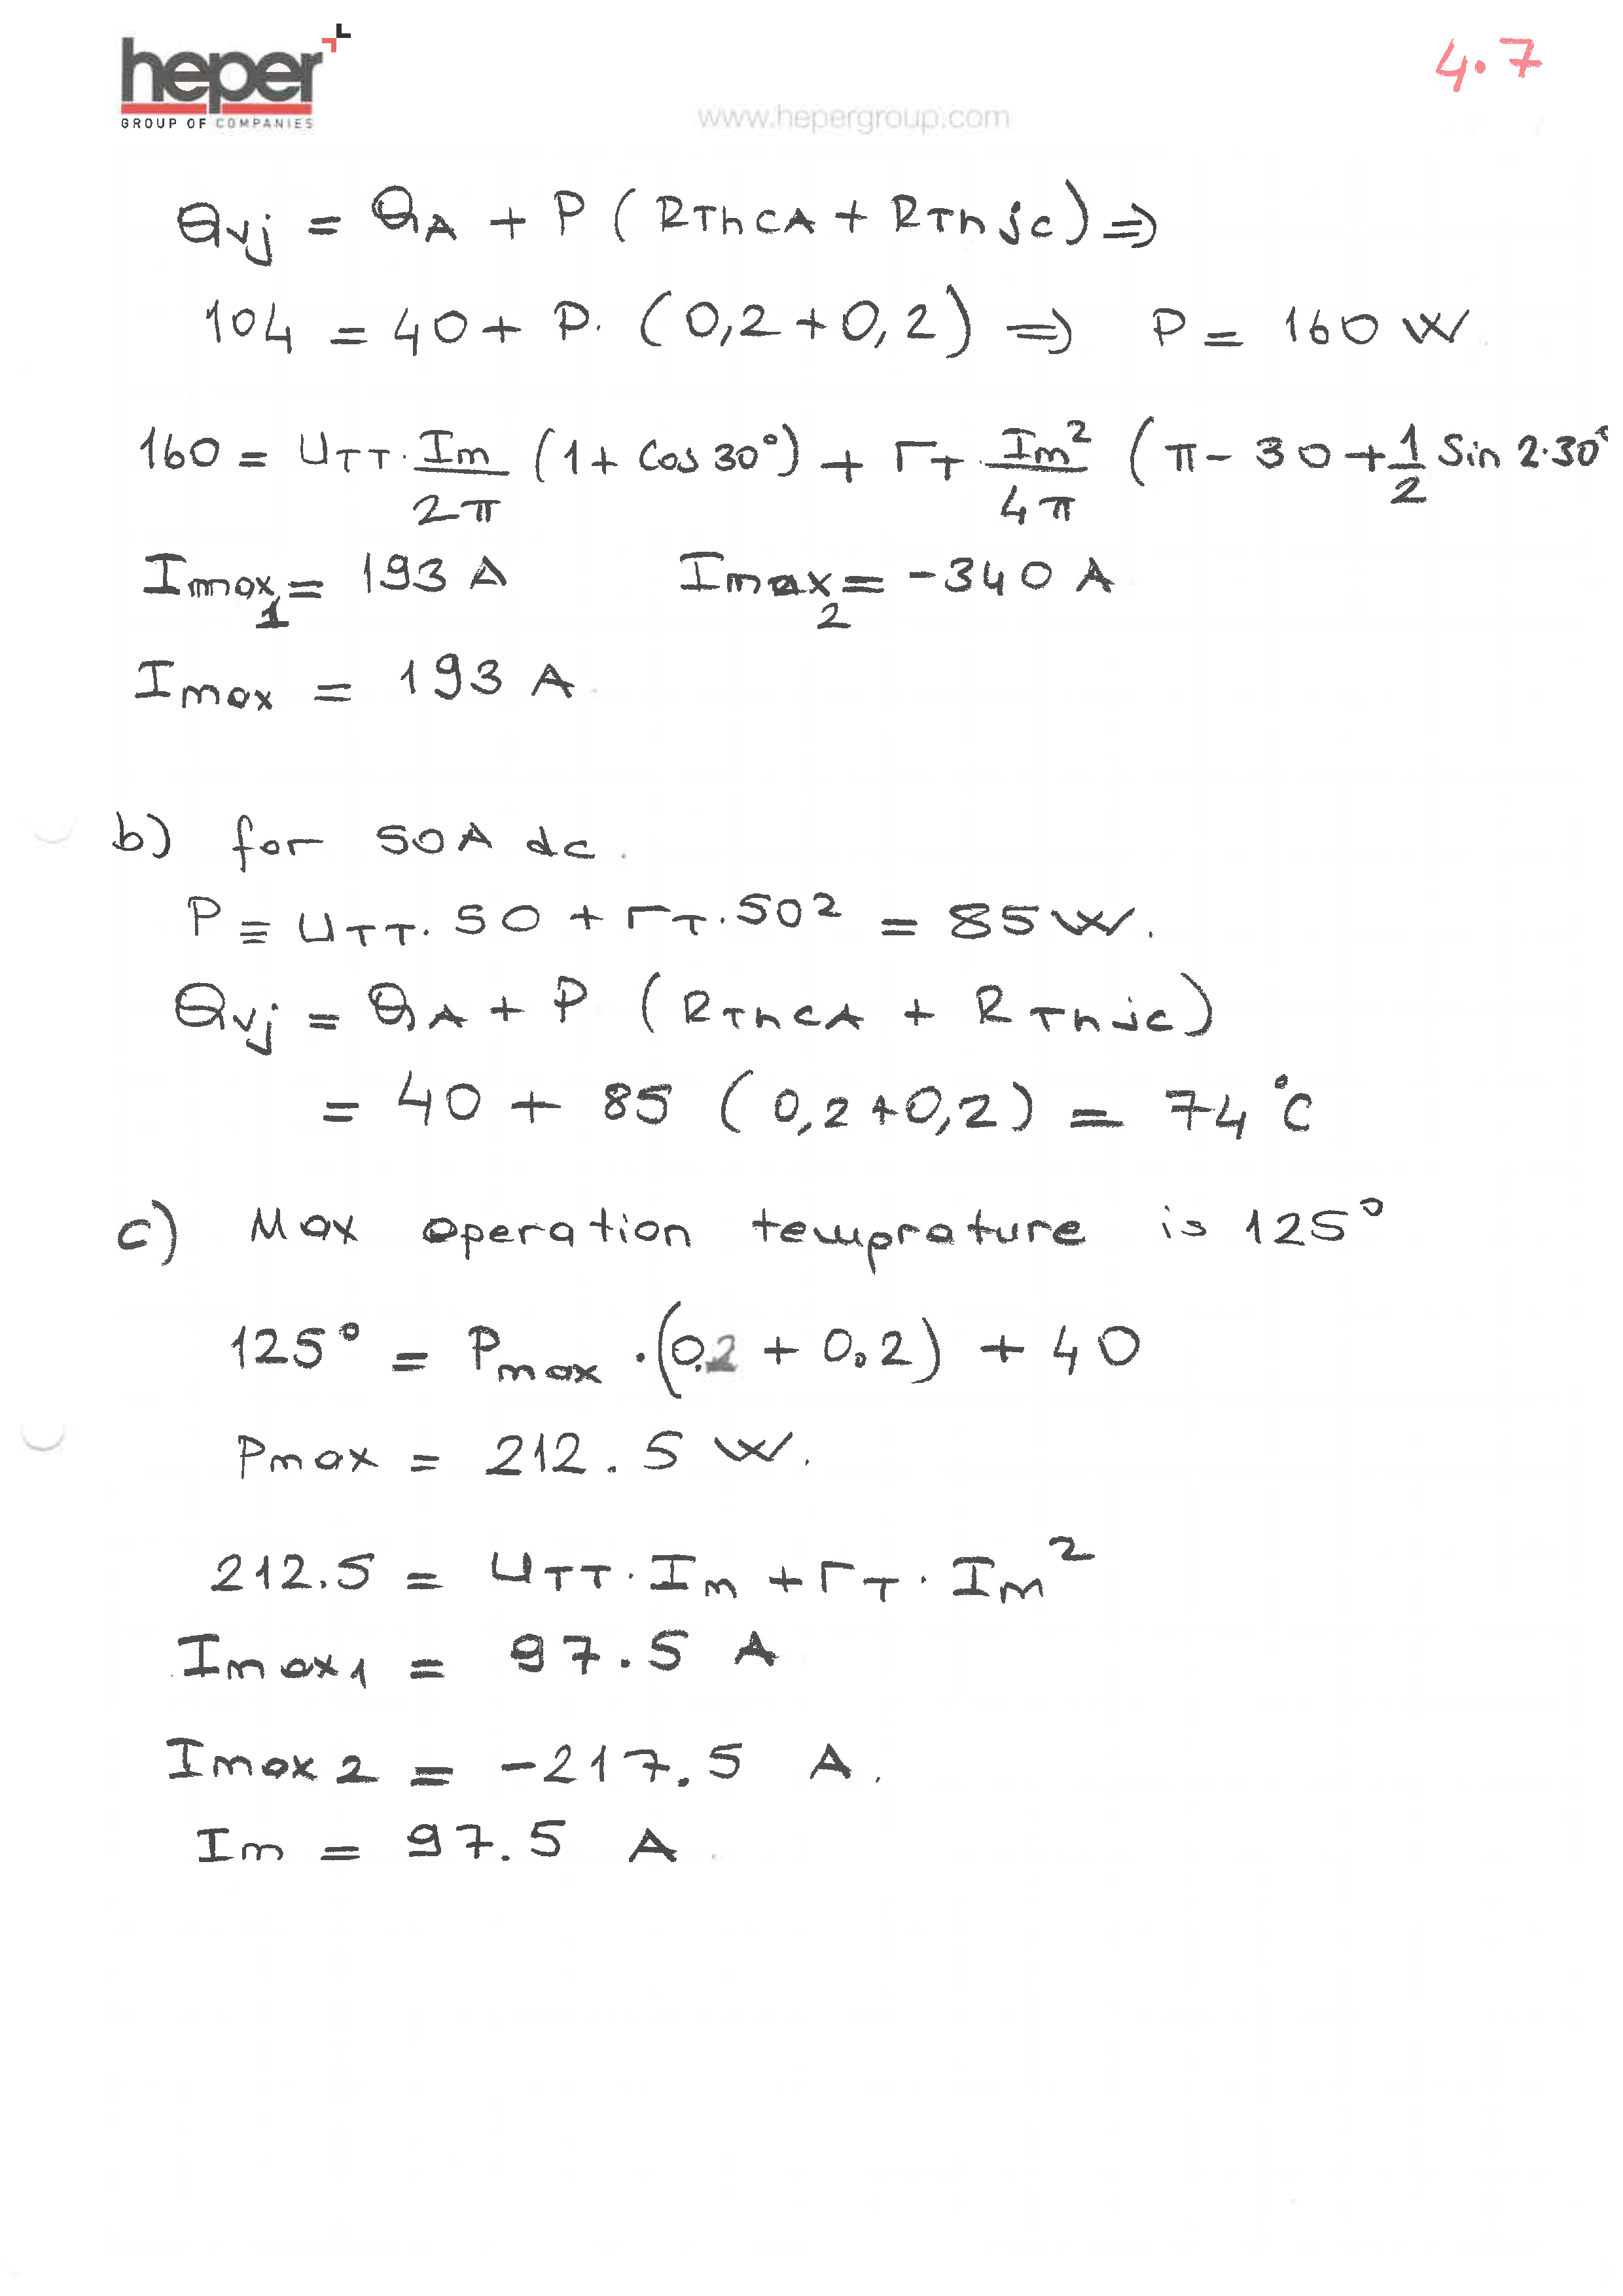 heper
GROUP OF COMPANIES
www.hepergroup.com
4.7
Qvj = QA + P ( RThCA + RThjc) ⇒
104 = 40 + P. (0,2 + 0,2) ⇒ P = 160 W
160 = UTT . Im/2π (1 + Cos 30°) + rT . Im²/4π (π - 30 + 1/2 Sin 2.30°
Imax1 = 193 A Imax2 = -340 A
Imax = 193 A
b) for 50A dc.
P = UTT. 50 + rT. 50² = 85 W.
Qvj = QA + P (RThCA + RThjc)
= 40 + 85 (0,2 + 0,2) = 74 °C
c) Max operation temprature is 125°
125° = Pmax . (0.2 + 0.2) + 40
Pmax = 212.5 W.
212.5 = UTT . Im + rT . Im²
Imax1 = 97.5 A
Imax2 = -217.5 A.
Im = 97.5 A